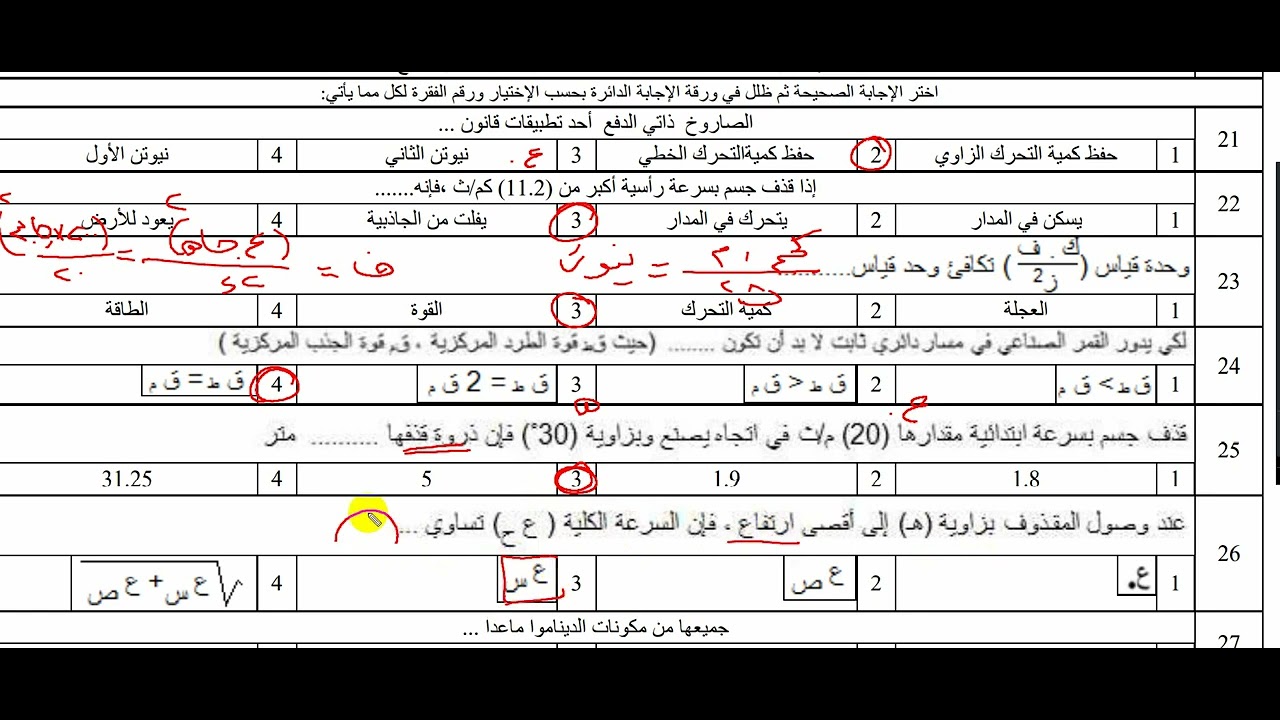 اختر الإجابة الصحيحة ثم ظلل في ورقة الإجابة الدائرة بحسب الإختيار ورقم الفقرة لكل مما يأتي:
21 الصاروخ ذاتي الدفع أحد تطبيقات قانون ...
1 حفظ كمية التحرك الزاوي 2 حفظ كميةالتحرك الخطي 3 نيوتن الثاني 4 نيوتن الأول
22 إذا قذف جسم بسرعة رأسية أكبر من (11.2) كم/ث ،فإنه.......
1 يسكن في المدار 2 يتحرك في المدار 3 يفلت من الجاذبية 4 يعود للأرض
23 وحدة قياس (ك . ف / ز2) تكافئ وحد قياس............
1 العجلة 2 كمية التحرك 3 القوة 4 الطاقة
24 لكي يدور القمر الصناعي في مسار دائري ثابت لا بد أن تكون ........ (حيث ق ط قوة الطرد المركزية ، ق م قوة الجذب المركزية )
1 ق ط > ق م 2 ق ط < ق م 3 ق ط = 2 ق م 4 ق ط = ق م
25 قذف جسم بسرعة ابتدائية مقدارها (20) م/ث في اتجاه يصنع وبزاوية (30°) فإن ذروة قذفها .......... متر
1 1.8 2 1.9 3 5 4 31.25
26 عند وصول المقذوف بزاوية (هـ) إلى أقصى ارتفاع ، فإن السرعة الكلية ( ع ح) تساوي ...
1 ع. 2 ع ص 3 ع س 4 √ع س + ع ص
27 جميعها من مكونات الديناموا ماعدا ...